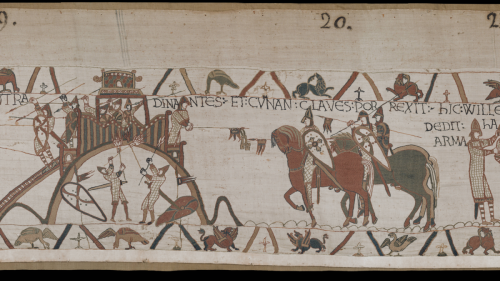 9. 20.
TRA DINANTES : ET : CVNAN : CLAVES : POR REXIT : hIC : WILLE
DEDIT : hA
ARMA